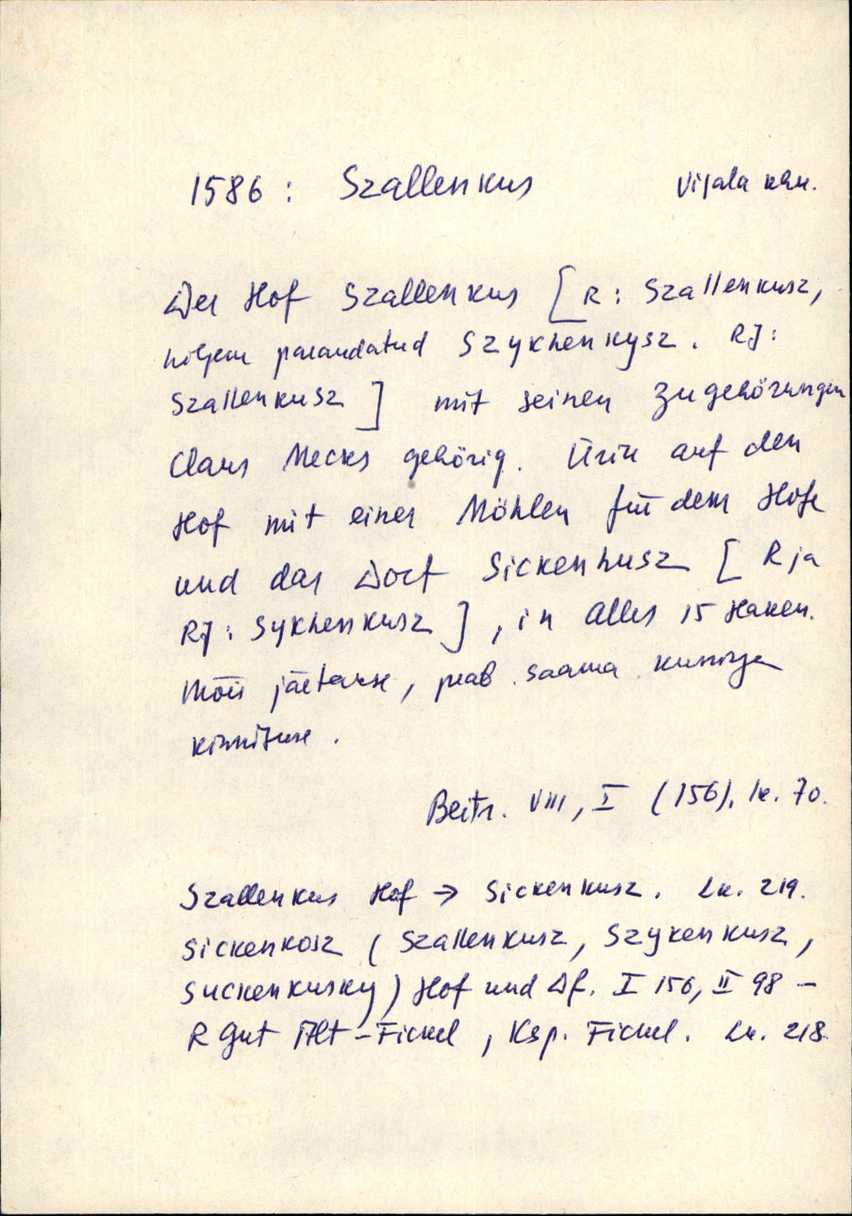 1586 : Szallenkus Vigala khn.
Der Hof Szallenkus [R : Szallenkusz,
hiljem parandatud Szykhenkysz. RJ :
Szallenkusz] mit seinen Zugehörungen
Claus Mecks gehörig. auf den
Hof mit einer Möhlen für dem Hofe
und das Dorf Sickenhusz [R ja
RJ : Sykhenkusz], in Alles 15 Haken.
Mõis jäetakse, peab saama kuninga
kinnituse.
Beitr. VIII, I (156). lk. 70.
Szallenkus Hof → Sickenkusz. Lk. 219.
Sickenkosz (Szallenkusz, Szykenkusz,
Suckenkusky) Hof und Df. I 156, II 98 –
R Gut Alt-Fickel, Ksp. Fickel. Lk. 218